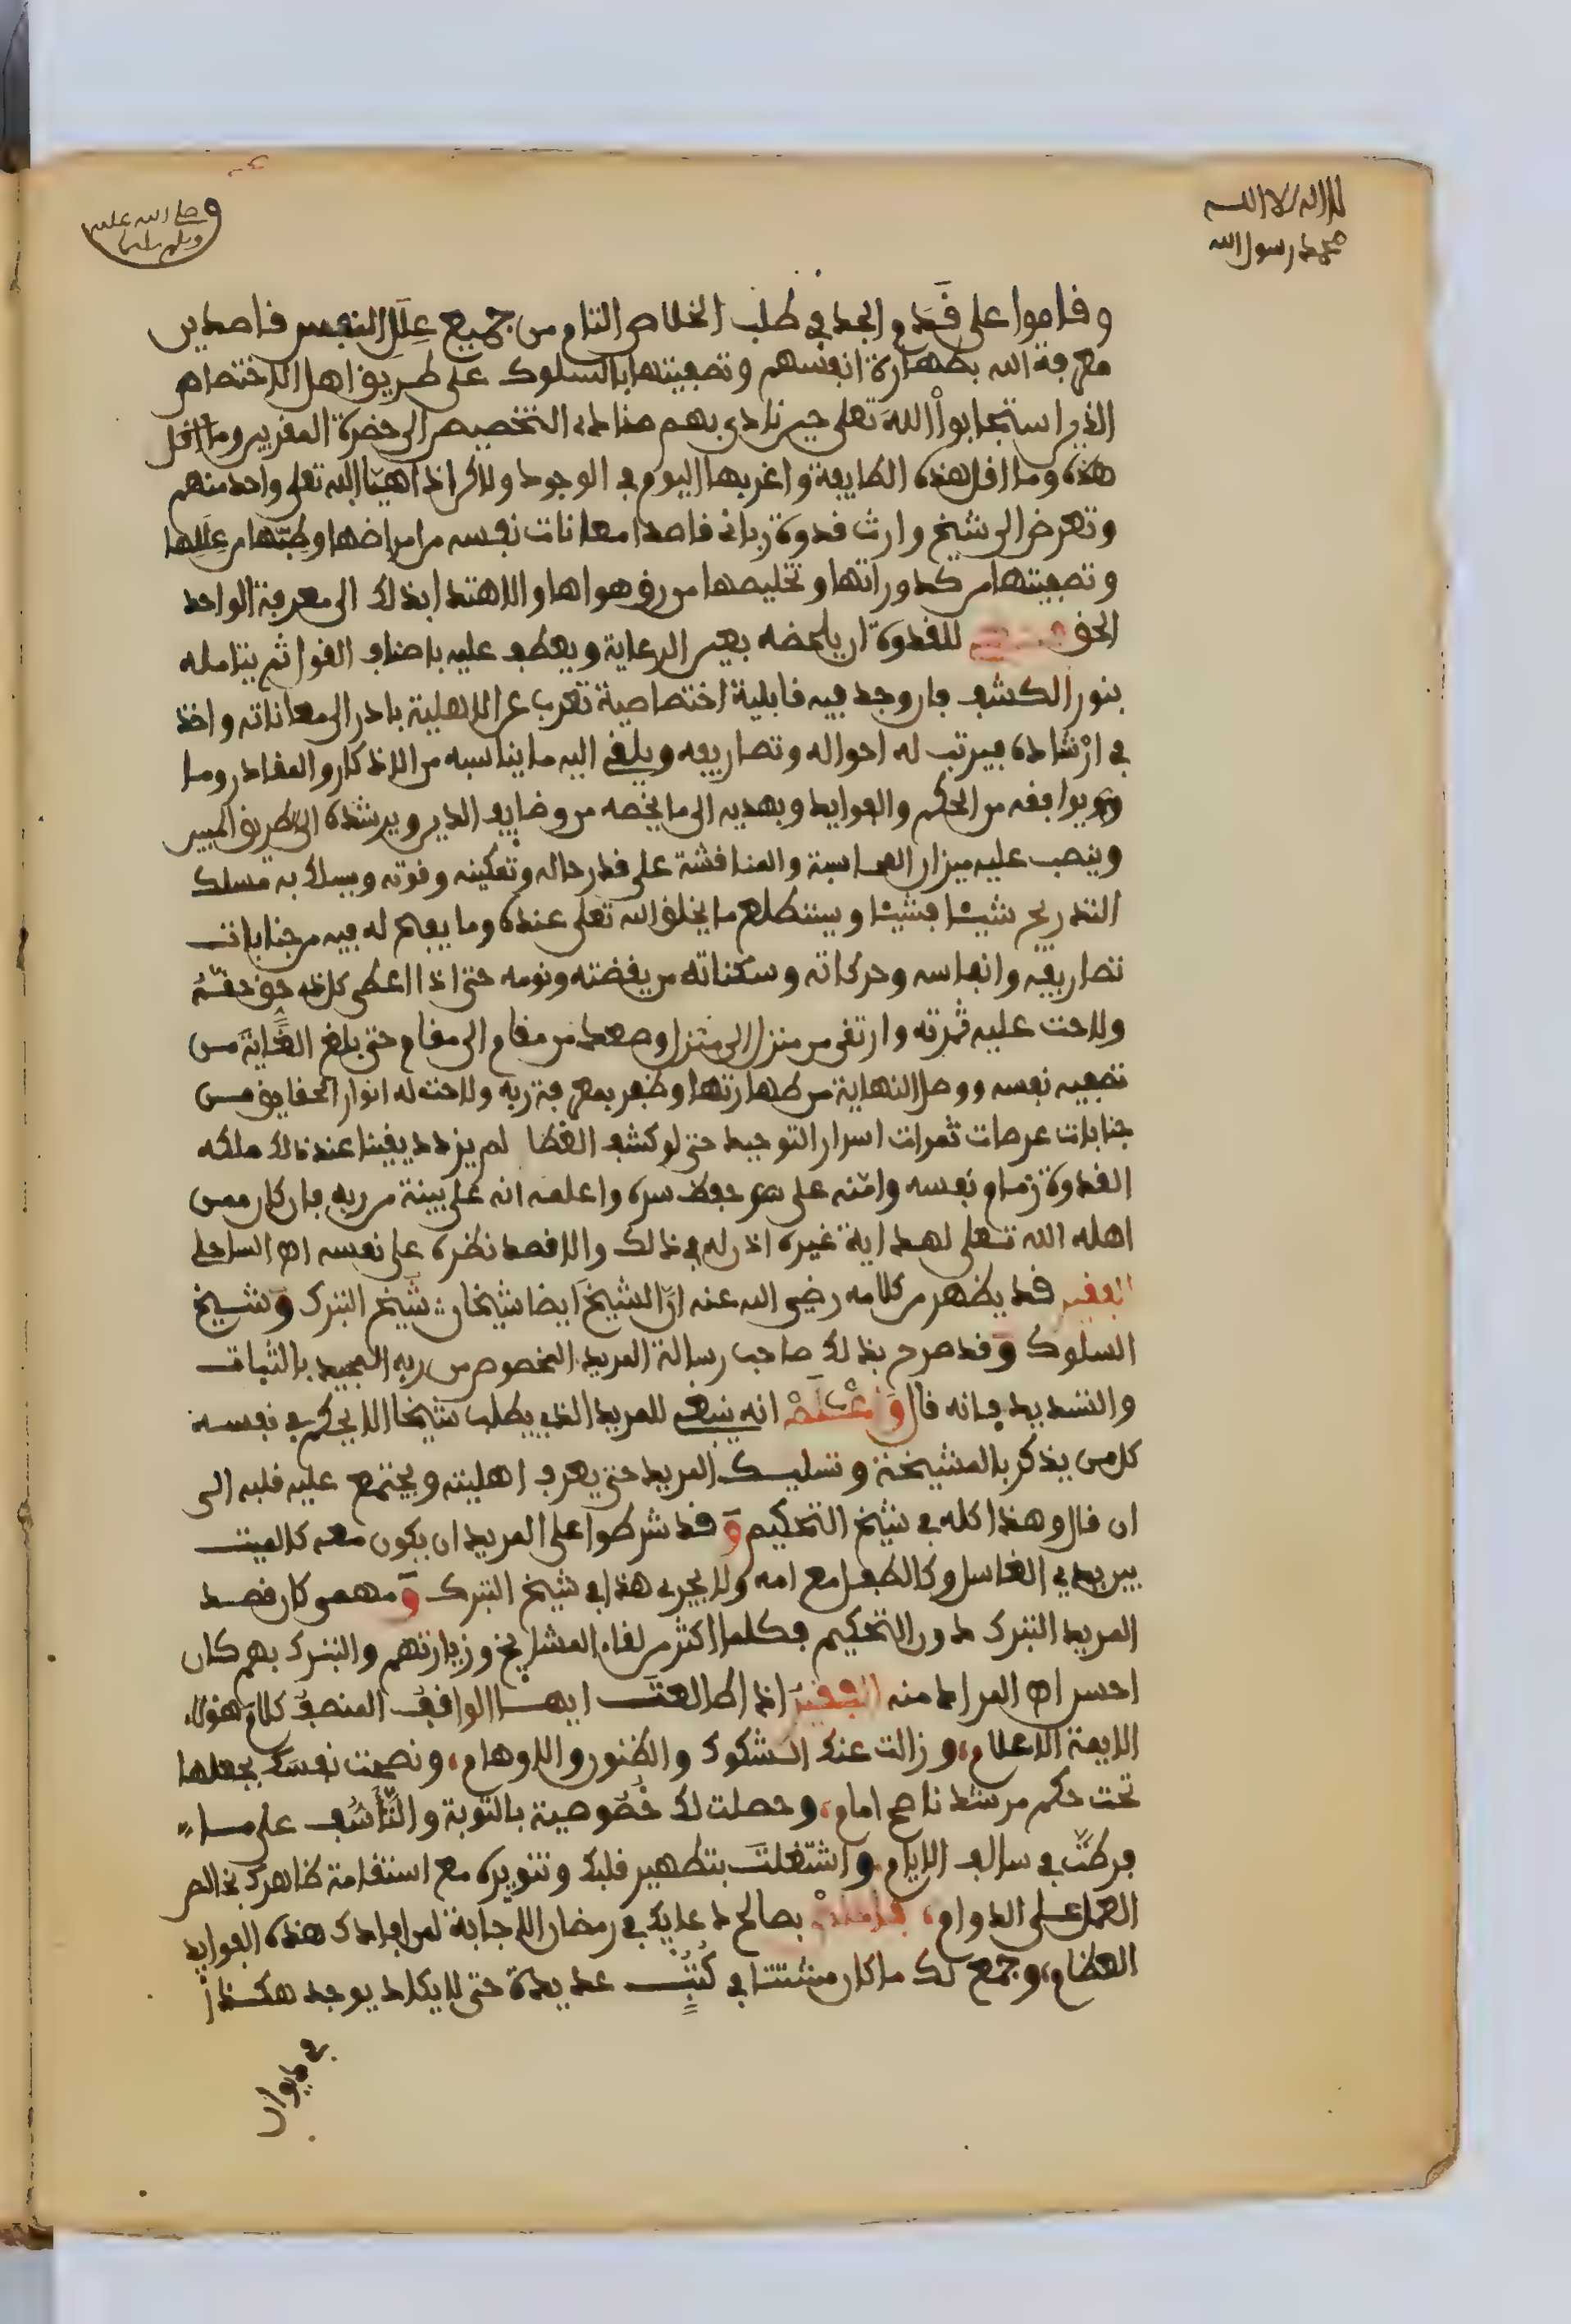 لا اله الا الله
محمد رسول الله
صلى الله عليه
وسلم
وقاموا على قدم الجد في طلب الخلاص التام من جميع علل النفس قاصدين
معرفة الله بطهارة انفسهم وتصفيتها بالسلوك على طريق اهل الاختصاص
الذين استجابوا الله تعلى حين نادى بهم منادى التخصيص الى حضرة المقربين وما اقل
هذه وما اقل هذه الطايفة واغربها اليوم في الوجود ولاكن اذا اهيا الله تعلى واحد منهم
وتعرض الى شيخ وارث قدوة رباني قاصدا معانات نفسه من امراضها وطبها من عللها
وتصفيتها من كدوراتها وتخليصها من رق هواها والاهتداء بذلك الى معرفة الواحد
الحق للقدوة ان يلحضه بعين الرعاية ويعطف عليه باصناف القوا ثم يتامله
بنور الكشف فان وجد فيه قابلية اختصاصية تعرب عن الاهلية بادر الى معاناته واخذ
في ارشاده فيرتب له احواله وتصاريفه ويلقي اليه ما يناسبه من الاذكار والمقادر وما
يوافقه من الحكم والفوايد ويهديه الى ما يخصه من وضايف الدين ويرشده الى الطريق المبين
وينصب عليه ميزان المحاسبة والمناقشة على قدر حاله وتمكينه وقوته ويسلك به مسلك
التدريج شيئا فشيئا ويستطلع ما يخلق الله تعلى عنده وما يفهم له فيه من جنابات
تصاريفه وانفاسه وحركاته وسكناته من يقضته ونومه حتى اذا اعطى كل ذي حق حقه
ولاحت عليه ثمرته وارتقى من منزل الى منزل وصعد من مقام الى مقام حتى بلغ الغاية من
تصفيه نفسه ووصل النهاية من طهارتها وظفر بمعرفة ربه ولاحت له انوار الحقايق من
جنابات عرصات ثمرات اسرار التوحيد حتى لو كشف الغطا لم يزدد يقينا عند ذلك ملكه
القدوة زمام نفسه وامنه على حفظ سره واعلمه انه على بينة من ربه فان كان ممن
اهله الله تعلى لهداية غيره اذن له في ذلك والا قصد نظره على نفسه اه الساحلي
الفقير قد يظهر من كلامه رضي الله عنه ان الشيخ ايضا شيخان شيخ التبرك وشيخ
السلوك وقد صرح بذلك صاحب رسالة المريد المخصوص من ربه المجيد بالثبات
والتسديد فانه قال انه ينبغي للمريد الذي يطلب شيخا الا يحكم في نفسه
كل من يذكر بالمشيخة وتسليك المريد حتى يعرف اهليته ويجتمع عليه قلبه الى
ان قال وهذا كله في شيخ التحكيم وقد شرطوا على المريد ان يكون معه كالميت
بين يدي الغاسل وكالطفل مع امه ولا يجرى هذا في شيخ التبرك ومهمى كان قصد
المريد التبرك دون التحكيم فكلما اكثر من لقاء المشايخ وزيارتهم والتبرك بهم كان
احسن اه المراد منه الفقير اذا طالعت ايها الواقف المنصف كلام هؤلاء
الايمة الاعلام، وزالت عنك الشكوك والظنون والاوهام، ونصحت نفسك بجعلها
تحت حكم مرشد ناصح امام، وحصلت لك خصوصية بالتوبة والتأسف على ما
فرطت في سالف الايام واشتغلت بتطهير قلبك وتنويره مع استقامة ظاهرك بخالص
العمل على الدوام، بصالح دعايك في رمضان الاجابة لمن افادك هذه الفوايد
العظام، وجمع لك ما كان مشتتا في كتب عديدة حتى لا يكاد يوجد هكذا
في ديوان